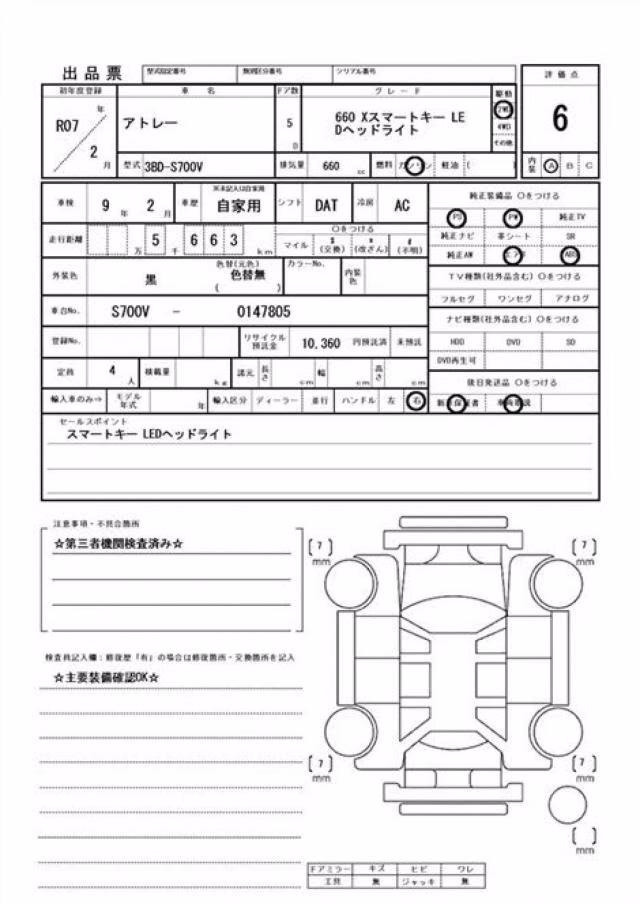 出品票 型式指定番号 類別区分番号 シリアル番号
評価点
初年度登録 車名 ドア数 グレード 駆動
R07 年 2 月
アトレー
5 D
660 Xスマートキー LE
Dヘッドライト
2WD
4WD
その他
6
型式 3BD-S700V 排気量 660 cc 燃料 ガソリン 軽油 ( ) 内装 A B C
車検 9 年 2 月 車歴 ※未記入は自家用 自家用 シフト DAT 冷房 AC
純正装備品 〇をつける
PS PW 純正TV
走行距離 万 5 千 6 6 3 km 〇をつける
マイル $(交換) *(改ざん) #(不明)
純正ナビ 革シート SR
純正AW エアB ABS
外装色 黒 色替(元色) 色替無 ( ) カラーNo. 内装色
TV種類(社外品含む) 〇をつける
フルセグ ワンセグ アナログ
車台No. S700V - 0147805
ナビ種類(社外品含む) 〇をつける
登録No. リサイクル預託金 10,360 円預託済 未預託
HDD DVD SD
DVD再生可
定員 4 人 積載量 kg 諸元 長さ cm 幅 cm 高さ cm
後日発送品 〇をつける
輸入車のみ⇒ モデル年式 年 輸入区分 ディーラー 並行 ハンドル 左 右
新車保証書
セールスポイント
スマートキー LEDヘッドライト
注意事項・不具合箇所
☆第三者機関検査済み☆
[7] mm
[7] mm
検査員記入欄：修復歴「有」の場合は修復箇所・交換箇所を記入
☆主要装備確認OK☆
[7] mm
[7] mm
[ ] mm
ドアミラー キズ ヒビ ワレ
工具 無 ジャッキ 無